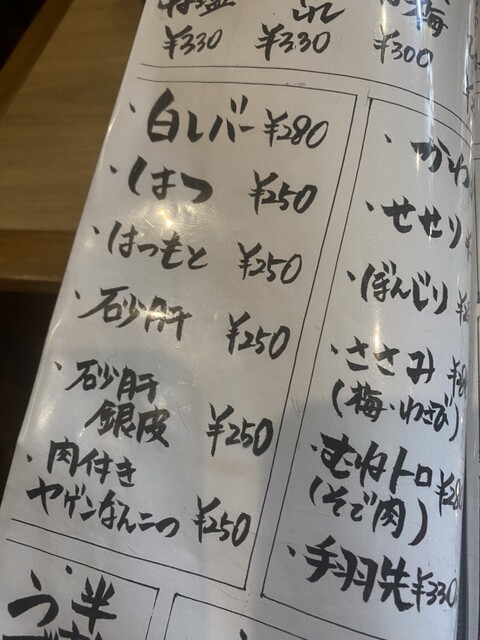 ¥330 ¥330 ¥300
・白レバー ¥280
・はつ ¥250
・はつもと ¥250
・砂肝 ¥250
・砂肝
銀皮 ¥250
・肉付き
ヤゲンなんこつ ¥250
・かわ
・せせり
・ぼんじり
・ささみ
(梅・わさび)
・むねトロ
(そで肉)
・手羽先 ¥330